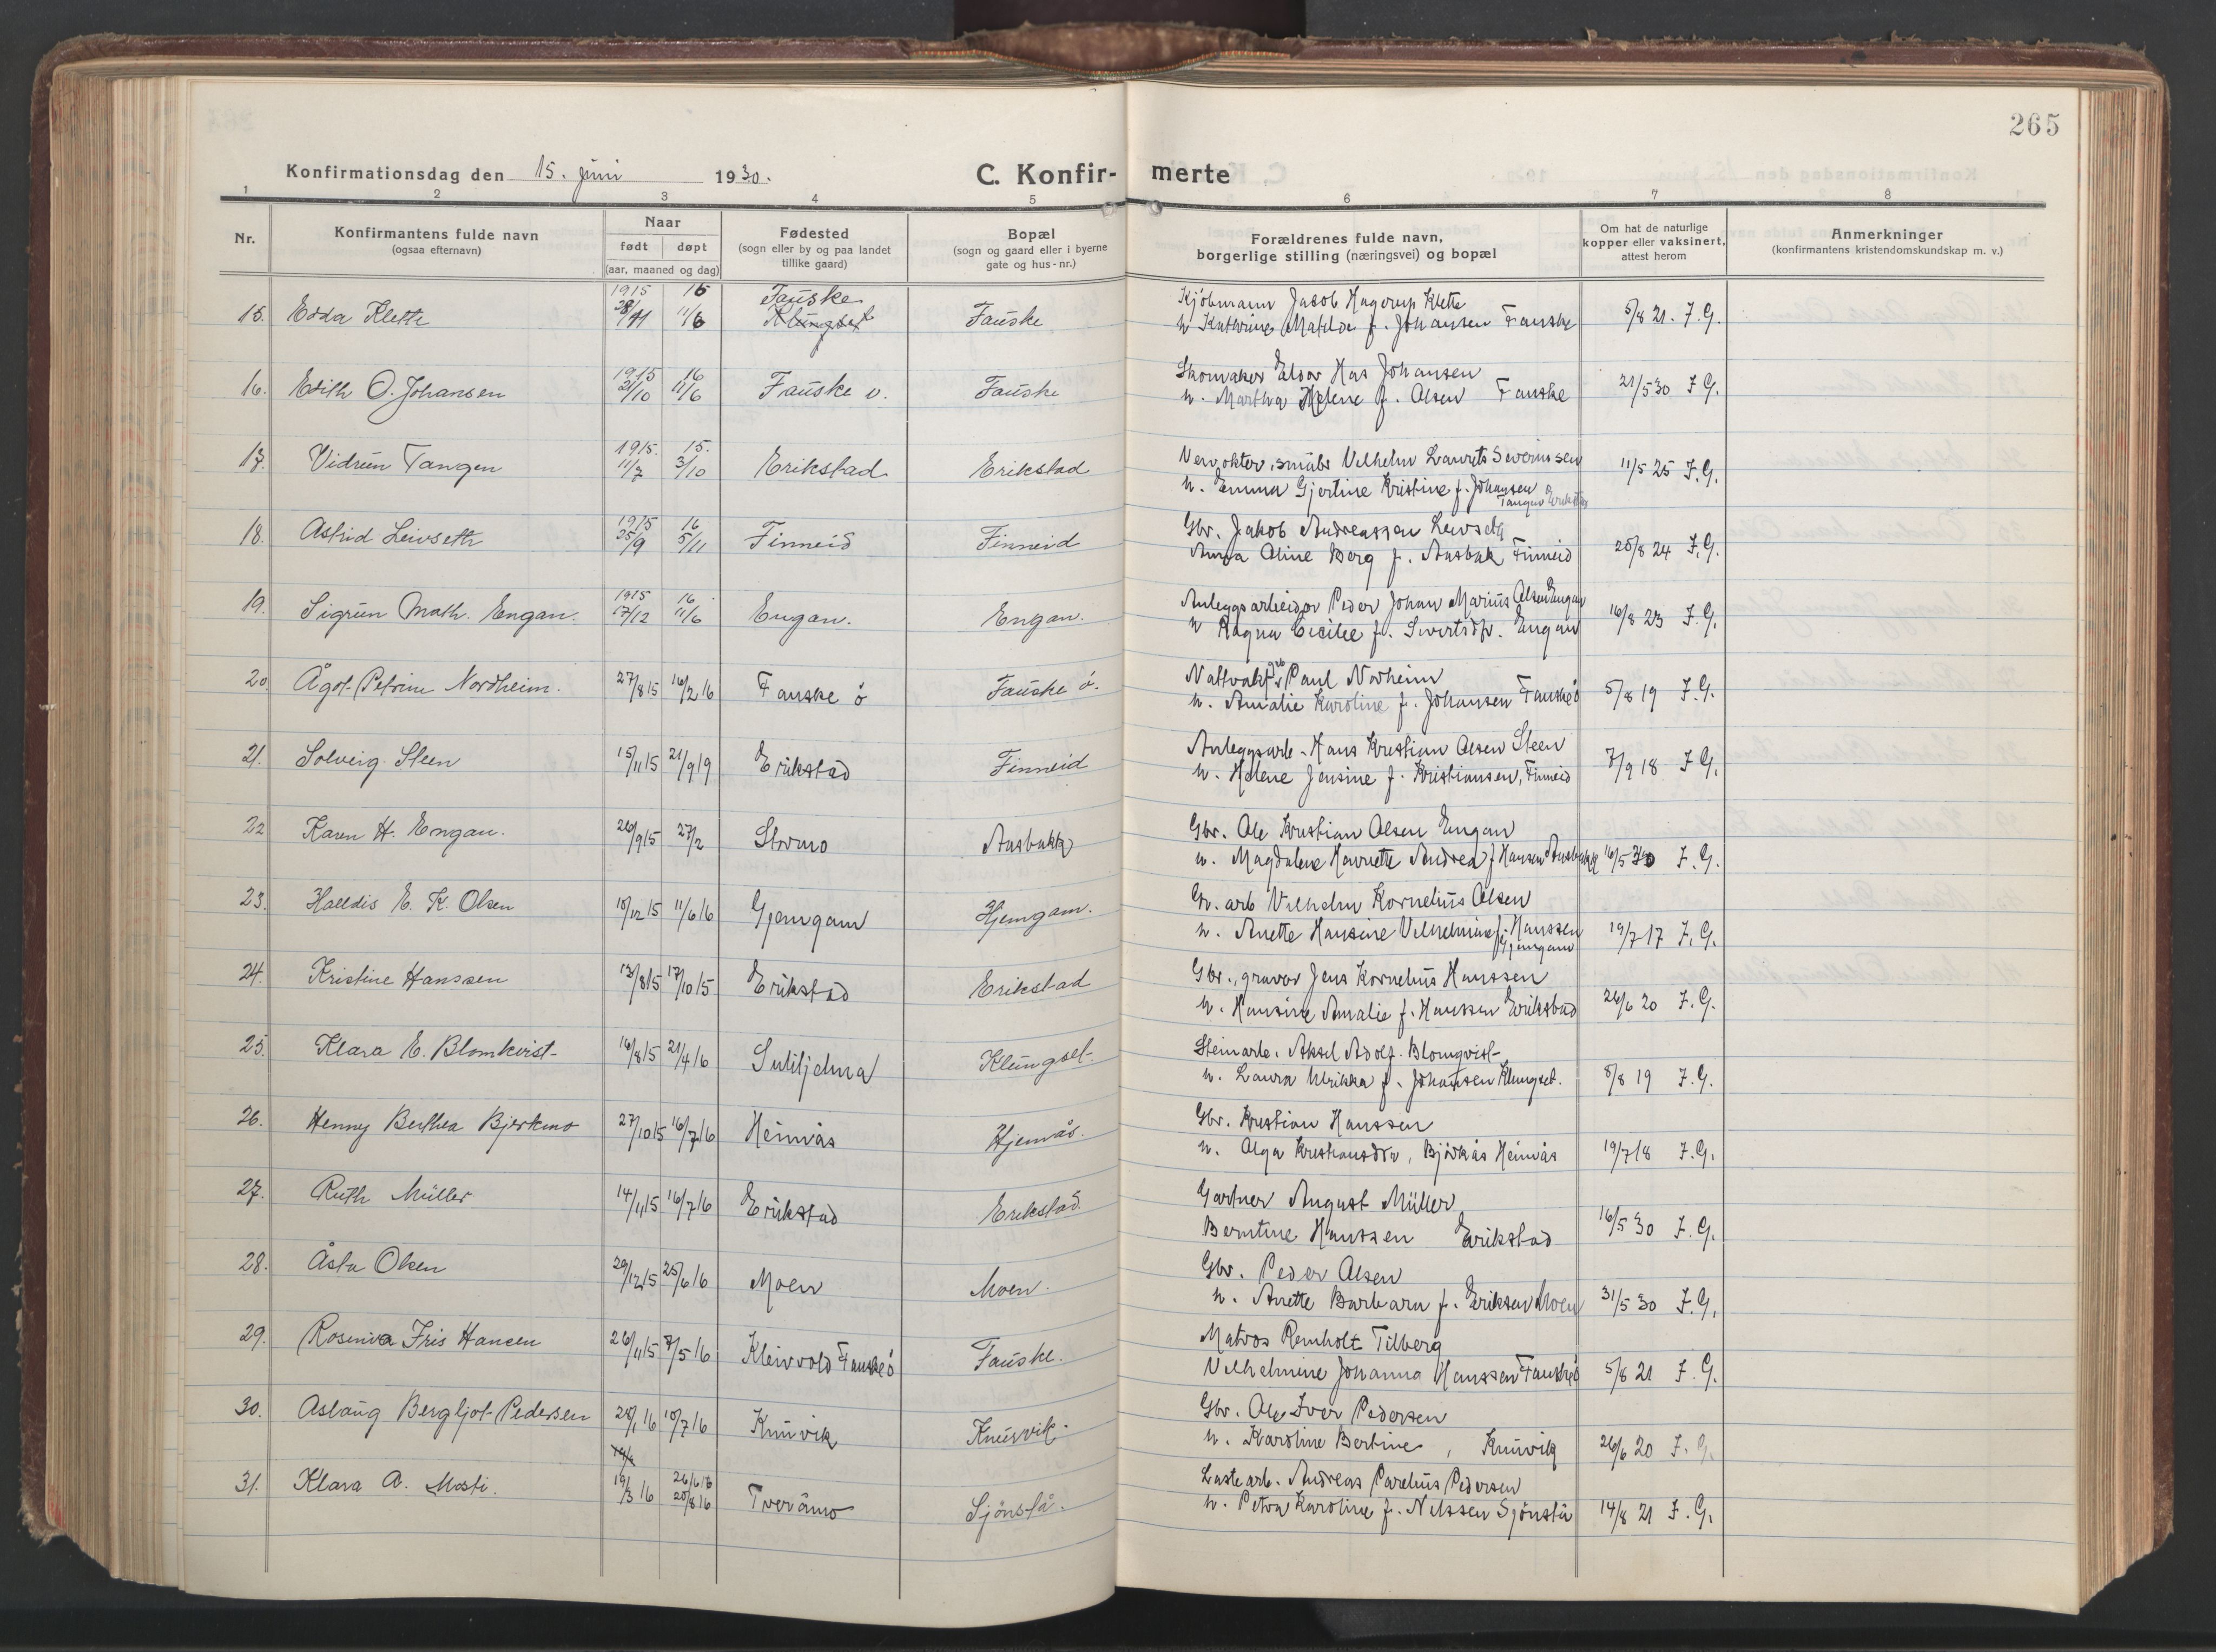 265
Konfirmationsdag den 15. juni 1930. C. Konfir- merte
1 2 3 4 5 6 7 8
Nr.
Konfirmantens fulde navn
(ogsaa efternavn)
Naar
født døpt
(aar, maaned og dag)
Fødested
(sogn eller by og paa landet
tillike gaard)
Bopæl
(sogn og gaard eller i byerne
gate og hus-nr.)
Forældrenes fulde navn,
borgerlige stilling (næringsvei) og bopæl
Om hat de naturlige
kopper eller vaksinert,
attest herom
Anmerkninger
(konfirmantens kristendomskundskap m. v.)
1915 16 Fauske Kjøbmann Jacob Hagerup Klette
15. Edda Klette 11/6 Klungset Fauske 5/8 21. J. G.
h Kathrine Matilde f. Johansen Fauske
1915 16 Skomaker Eldor Johansen
16. Edith O. Johansen 21/10 11/6 Fauske v. Fauske 21/5 30 J G.
h. Martha Helene f. Olsen Fauske
1915. 15. Vilhelm Laurits Severinssen
17. Vidrun Tangen 11/7 3/10 Erikstad Erikstad 11/5 25 J. G.
h. Emma Gjertine Kristine f. Johansen
Tangen Erikstad
1915 16 Gbr. Jakob Andreassen Leivseth
18. Astrid Leivseth 25/9 5/11 Finneid Finneid 25/8 24 J. G.
Anna Oline Berg f. Aasbak Finneid
1915 16 Anleggsarbeider Peder Johan Marius Olsen Engan
19. Sigrun Math. Engan. 17/12 11/6 Engan. Engan. 16/8 23 J. G.
h Ragna Cecilie f. Sivertsdtr. Engan
20 Ågot Petrine Nordheim. 27/8 15 16/2 16 Fauske ö Fauske ö. Paul Norheim
h. Amalie Karoline f. Johansen Fauske ö 5/8 19 J. G.
21. Solveig Steen 15/11 15 21/9 19 Erikstad Finneid Anleggsarb. Hans Kristian Olsen Steen
h. Helene Jensine f. Kristiansen, Finneid 7/9 18 J G.
22 Karen H. Engan. 26/9 15 27/2 Stormo Aasbakk Gbr. Ole Kristian Olsen Engan
h. Magdalene Henriette Andrea f Hansen Aasbakk 16/5 30 J. G.
23. Halldis E. K. Olsen 10/12 15 11/6 16 Gjemgam Hjemgam. Gr. arb Vilhelm Kornelius Olsen
h. Anette Hansine Vilhelmine f. Hanssen 19/7 17 J. G.
Gjemgam
24. Kristine Hanssen 13/8 15 17/10 15 Erikstad Erikstad Gbr., gruvar Jens Kornelius Hanssen
h. Hansine Amalie f. Hanssen Erikstad 26/6 20 J. G.
25. Klara E. Blomkvist 16/8 15 21/4 16 Sulitjelma Klungset Steinarb. Aksel Adolf Blomqvist
h. Laura Ulrikka f. Johansen Klungset. 5/8 19 J. G.
26. Henny Berthea Bjerkmo 27/10 15 16/7 16 Heimås Hjemås. Gbr. Kristian Hanssen
h. Olga Kristiansdtr, Björkås Heimås 19/7 18 J. G.
27. Ruth Müller 14/11 15 16/7 16 Erikstad Erikstad. Gartner August Müller
Berntine Hanssen Erikstad 16/5 30 J. G.
28. Åsta Olsen 29/12 15 25/6 16 Moen Moen. Gbr. Peder Olsen
h. Anette Barbara f. Eriksen Moen 31/5 30 J. G.
29. Iris Hansen 26/11 15 7/5 16 Kleivvold Fauske ö Fauske. Matros Reinholt Tilberg
Vilhelmine Johanna Hanssen Fauske ö 5/8 21 J. G.
30. Aslaug Bergljot Pedersen 28/1 16 10/7 16 Knuvik Knusvik. Gbr. Ole Iver Pedersen
h. Karoline Bertine, Knuvik 26/6 20 J. G.
31. Klara A. Mosti. 19/3 16 26/6 16 20/8 16 Tveråmo Sjönstå. Lastearb. Andreas Parelius Pedersen
h. Petra Karoline f. Nilssen Sjönstå 14/8 21 J. G.